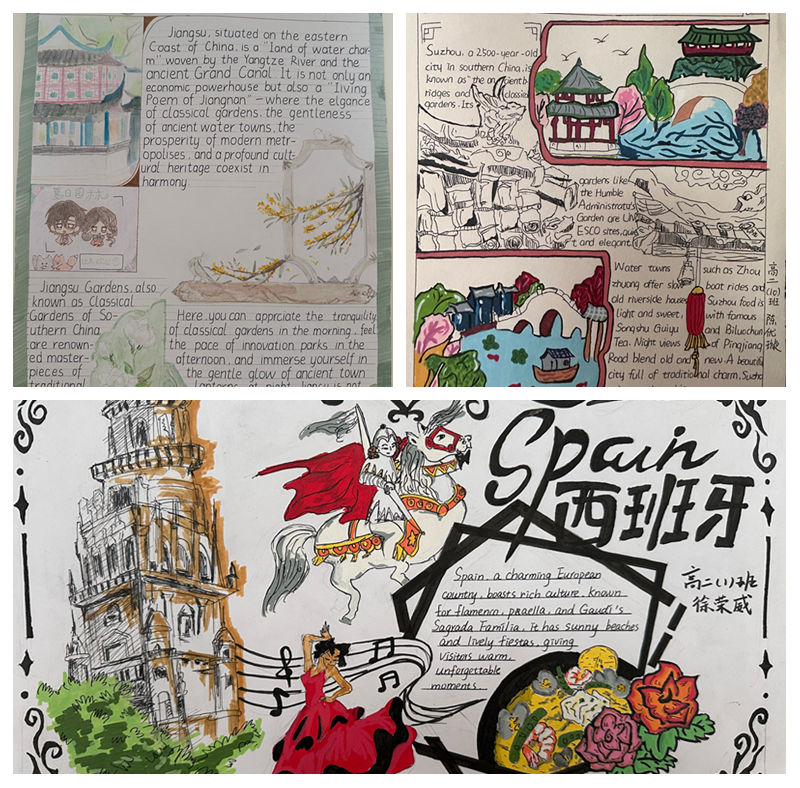 Jiangsu, situated on the eastern
Coast of China, is a "land of water char-
m" woven by the Yangtze River and the
ancient Grand Canal. It is not only an
economic powerhouse but also a "living
Poem of Jiangnan" — where the elegance
of classical gardens, the gentleness
of ancient water towns, the
prosperity of modern metr-
opolises, and a profound cult-
ural heritage coexist in
harmony
夏日园林
Jiangsu Gardens, also
known as Classical
Gardens of So-
uthern China,
are renown-
ed master-
pieces of
traditional
Here, you can apprciate the tranquility
of classical gardens in the morning, feel
the pace of innovation parks in the
afternoon, and immerse yourself in
the gentle glow of ancient town
lanterns at night. Jiangsu is not
Suzhou, a 2500-year-old
city in southern China, is
known as "the ancient b-
ridges and classical
gardens. Its
gardens like
the Humble
Administrator's
Garden are UN
ESCO sites, quie
t and elegant.
Water towns such as Zhou
zhuang offer slow boat rides and
old riverside house Suzhou food is
light and sweet, with famous
Songshu Guiyu and Biluochun
Tea. Night views of Pingjiang
Road blend old and new. A beautiful
city full of traditional charm, Suzho
高二(10)班 陈
Spain
西班牙
高二(1)班
徐荣威
Spain, a charming European
country, boasts rich culture, known
for flamenco, paaella, and Gaudí's
Sagrada Família, it has sunny beaches
and lively fiestas, giving
visitors warm,
unforgettable
moments.